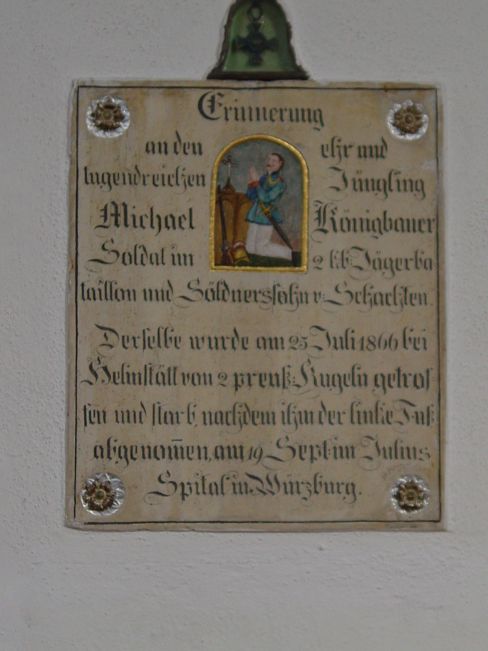 Erinnerung
an den ehr und
tugendreichen Jüngling
Michael Königbauer
Soldat im 2 k:b: Jägerba
taillon und Söldnerssohn v: Schachten.
Derselbe wurde am 25 Juli 1866 bei
Helmstätt von 2 preuß: Kugeln getrof
fen und starb, nachdem ihm der linke Fuß
abgenom̅en, am 19 Sept: im Julius
Spital in Würzburg.